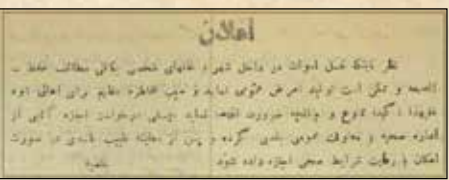 اعلان
نظر باینکه غسل اموات در داخل شهر و خانهای شخصی بکلی مخالف حفظ
الصحه و ممکن است تولید امراض عمومی نماید و سبب مخاطره عظیم برای اهالی شود
علیهذا اکیداً ممنوع و چنانچه ضرورت اقتضا نماید بایستی درخواست اجازه کتبی از
اداره صحیه و معاونت عمومی بلدی کرده و پس از معاینه طبیب بلدی در صورت
امکان با رعایت شرایط صحی اجازه داده شود بلدیه